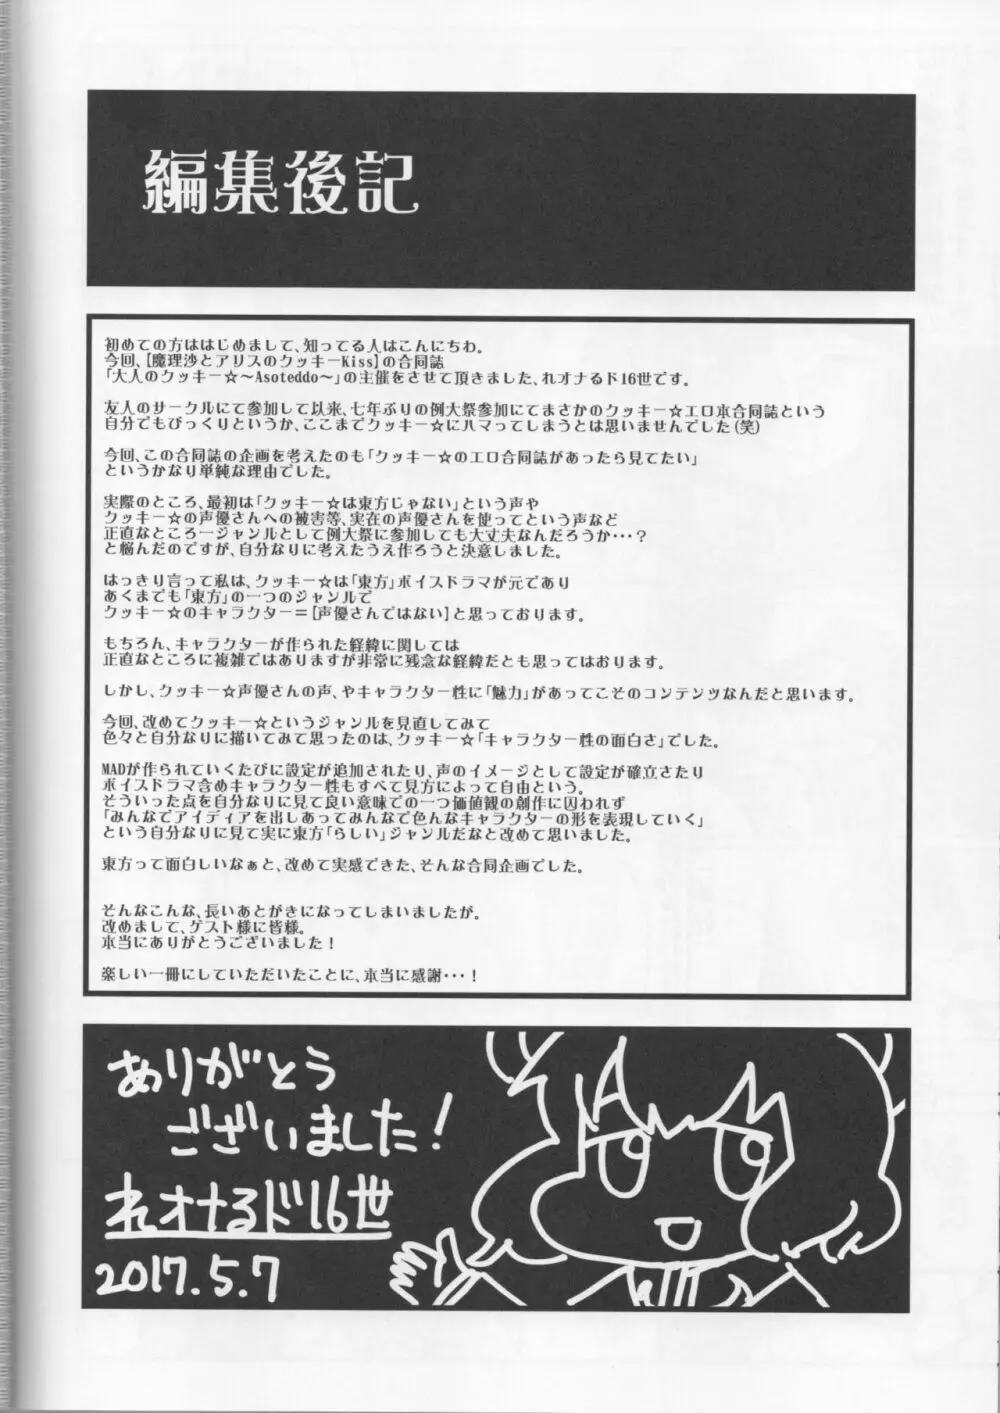 編集後記
初めての方ははじめまして、知ってる人はこんにちわ。
今回、[魔理沙とアリスのクッキーKiss]の合同誌
「大人のクッキー☆～Asoteddo～」の主催をさせて頂きました、れオナるド16世です。
友人のサークルにて参加して以来、七年ぶりの例大祭参加にてまさかのクッキー☆エロ本合同誌という
自分でもびっくりというか、ここまでクッキー☆にハマってしまうとは思いませんでした(笑)
今回、この合同誌の企画を考えたのも「クッキー☆のエロ合同誌があったら見てたい」
というかなり単純な理由でした。
実際のところ、最初は「クッキー☆は東方じゃない」という声や
クッキー☆の声優さんへの被害等、実在の声優さんを使ってという声など
正直なところ一ジャンルとして例大祭に参加しても大丈夫なんだろうか・・・？
と悩んだのですが、自分なりに考えたうえ作ろうと決意しました。
はっきり言って私は、クッキー☆は「東方」ボイスドラマが元であり
あくまでも「東方」の一つのジャンルで
クッキー☆のキャラクター＝[声優さんではない]と思っております。
もちろん、キャラクターが作られた経緯に関しては
正直なところに複雑ではありますが非常に残念な経緯だとも思ってはおります。
しかし、クッキー☆声優さんの声、やキャラクター性に「魅力」があってこそのコンテンツなんだと思います。
今回、改めてクッキー☆というジャンルを見直してみて
色々と自分なりに描いてみて思ったのは、クッキー☆「キャラクター性の面白さ」でした。
MADが作られていくたびに設定が追加されたり、声のイメージとして設定が確立さたり
ボイスドラマ含めキャラクター性もすべて見方によって自由という。
そういった点を自分なりに見て良い意味での一つ価値観の創作に囚われず
「みんなでアイディアを出しあってみんなで色んなキャラクターの形を表現していく」
という自分なりに見て実に東方「らしい」ジャンルだなと改めて思いました。
東方って面白しいなぁと、改めて実感できた、そんな合同企画でした。
そんなこんな、長いあとがきになってしまいましたが。
改めまして、ゲスト様に皆様。
本当にありがとうございました！
楽しい一冊にしていただいたことに、本当に感謝・・・！
ありがとう
ございました！
れオナるド16世
2017.5.7